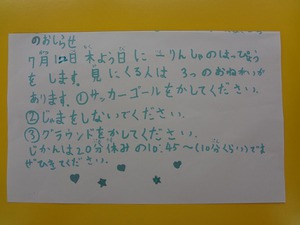 のおしらせ
7月12日 木よう日に一りんしゃのはっぴょう
をします。見にくる人は3つのおねがいが
あります。①サッカーゴールをかしてください。
②じゃまをしないでください。
③グラウンドをかしてください。
じかんは20分休みの10:45〜(10分くらい)でま
ぜひきてください。